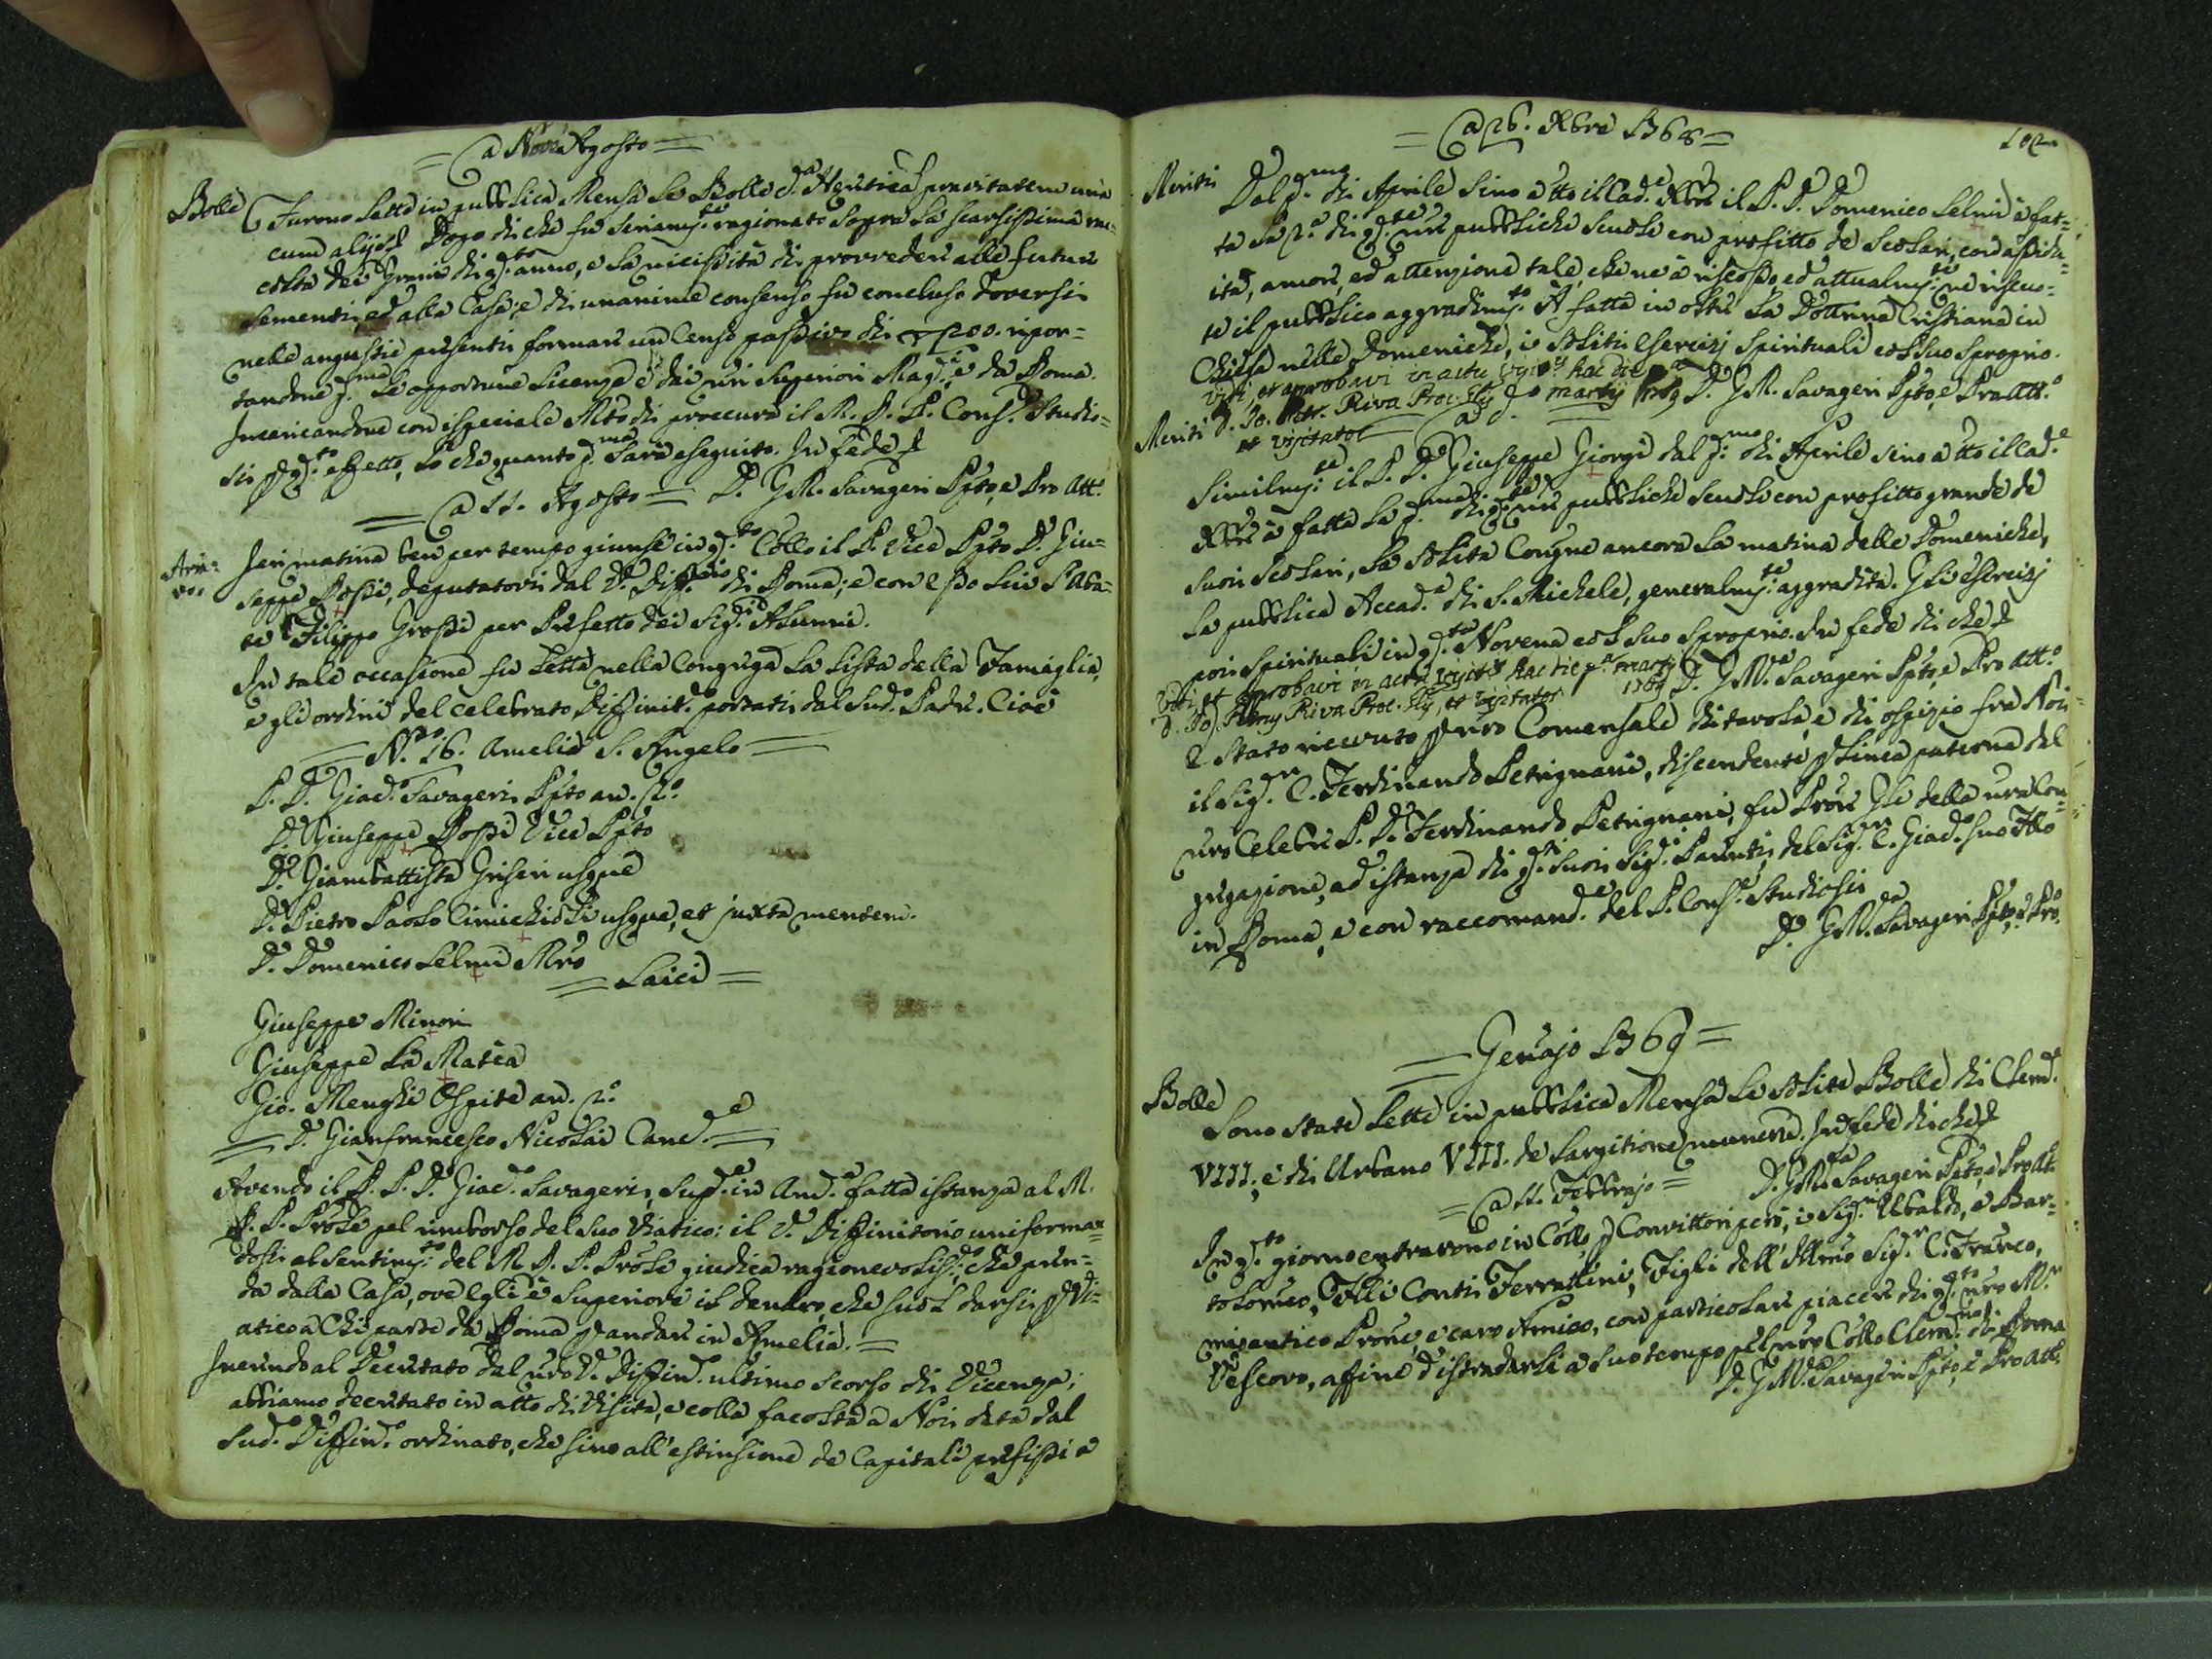 = a Nove Agosto =
Bolle Furono lette in pubblica Mensa le Bolle c.a Hæretica pravitatem una
cum alijs. Dopo di che fu seriam.te ragionato sopra la scarsissima rac-
colta dei Grani di q.to anno, e la nicissità di provvedere alle future
sementi, ed alla Casa; e di unanime consenso fu concluso doversi
nelle angustie presenti formare un Censo passivo di 200. ripor-
tandone p.ma le opportune licenze e dai nri Superiori Mag.ri e da Roma
Incaricandone con ispeciale Mto di proccura il R. P. D. Cons.re Studio-
si p q.to effetto, lo che quanto p.ma sarà eseguito. In fede
= a 11. Agosto = D. G.M. Savageri Ppto, e Pro Att.o
Arri-
vo. Jeri matina ben per tempo giunse in q.to Collo il P. Vice Ppto D. Giu-
seppe Rossi, deputatovi dal V. Diff.rio di Roma; e con esso lui l'Aba-
te Filippo Grossi per Prefetto dei Sig.ri Alunni.
In tale occasione fu letta nella Congrega la lista della Famiglia,
e gli ordini del celebrato Diffinit.o portati dal sud.o Padre. Cioè
= N.o 16. Amelia S. Angelo =
P. D. Giac.o Savageri Ppto an. 2.o
D. Giuseppe Rossi Vice Ppto
D. Giambattista Griseri usque
D. Pietro Paolo Cimichidi usque, et juxta mentem.
D. Domenico Selmi Mro
= Laici =
Giuseppe Minori
Giuseppe La Matea
Gio. Menghi Ospite an. 2.o
= D. Gianfrancesco Nicolai Canc.e =
Avendo il P. P. D. Giac.o Savageri, Sup.e in Am.a fatta istanza al R.
P. P. Prole pel rimborso del suo Viatico: il V. Diffinitorio uniforman-
dosi al sentim.to del R. P. P. Prole giudica ragionevolis.o, che pren-
da dalla Casa, ove Egli è Superiore il denaro, che suol darsi p Vi-
atico a Chi parte da Roma p andare in Amelia. =
Inerendo al Decretato dal nro V. Diffin.o ultimo scorso di Vicenza;
abbiamo decretato in atto di Visita, e colla facoltà a Noi data dal
Sud.o Diffin.o ordinato, che sino all'estinsione de Capitali prefissi a
= a 26. Xbre 1768 = 102
Meriti Dal p.mo di Aprile sino a tto il cad.e Xbre il P. D. Domenico Selmi à fat-
ta la 2.a di q.te nre pubbliche Scuole con profitto de Scolari, con assidu-
ità, amore, ed attenzione tale, che ne à riscosso, ed attualm.te ne riscuo-
te il pubblico aggradim.to. A fatta in oltre la Dottrina Cristiana in
Chiesa nelle Domeniche, i soliti Esercizj Spirituali col suo Sproprio.
Vidi, et approbavi in actu vis.nis hac die
D. Jo. Petr. Riva Proc. Glis p.a martij 1769 D. G.M. Savageri Ppto, e Pro Att.o
et visitator
Meriti Similm.te il P. D. Giuseppe Giorgi dal p.mo di Aprile sino a tto il cad.e
Xbre à fatta la p.ma di q.te nre pubbliche Scuole con profitto grande de
suoi Scolari, la solita Congne ancora la matina delle Domeniche,
la pubblica Accad.a di S. Michele, generalm.te aggradita. Gli esercizj
poi Spirituali in q.ta Novena col suo Sproprio. In fede di che
Vidi, et approbavi in actu visit.nis hac die p.a martij
D. Jo. Petrus Riva Proc. Glis, et visitator 1769 D. G.M.a Savageri Ppto, e Pro Att.o
È stato ricevuto p nro Comensale di tavola, e di ospizio fra Noi
il Sig.r C. Ferdinando Petrignani, discendente p linea paterna del
nro Celebre P. D. Ferdinando Petrignani, fu Prore Gle della nra Con-
gregazione, ad istanza di q.ti suoi Sig.ri Parenti, del Sig.r C. Giac.o suo Fllo
in Roma, e con raccomand.e del P. Cons.re Studiosi
D. G.M.a Savageri Ppto, e Pro.
= Genajo 1769 =
Bolle Sono state lette in pubblica Mensa le solite Bolle di Clem.te
VIII., e di Urbano VIII. de largitione munerum. In fede di che
= a 11. Febbrajo = D. G.M.a Savageri Ppto, e Pro Att.
In q.to giorno entrarono in Collo p Convittori però, i Sig.ri Ubaldo, e Bar-
tolomeo, Flli Conti Ferrattini, Figli dell'Illmo Sig.r C. Franco,
mio antico Prone, e caro Amico, con particolare piacere di q.to nro M.r
Vescovo, affine d'istradarli a suo tempo pel nro Collo Clem.no di Roma
D. G.M. Savageri Ppto, e Pro Att.